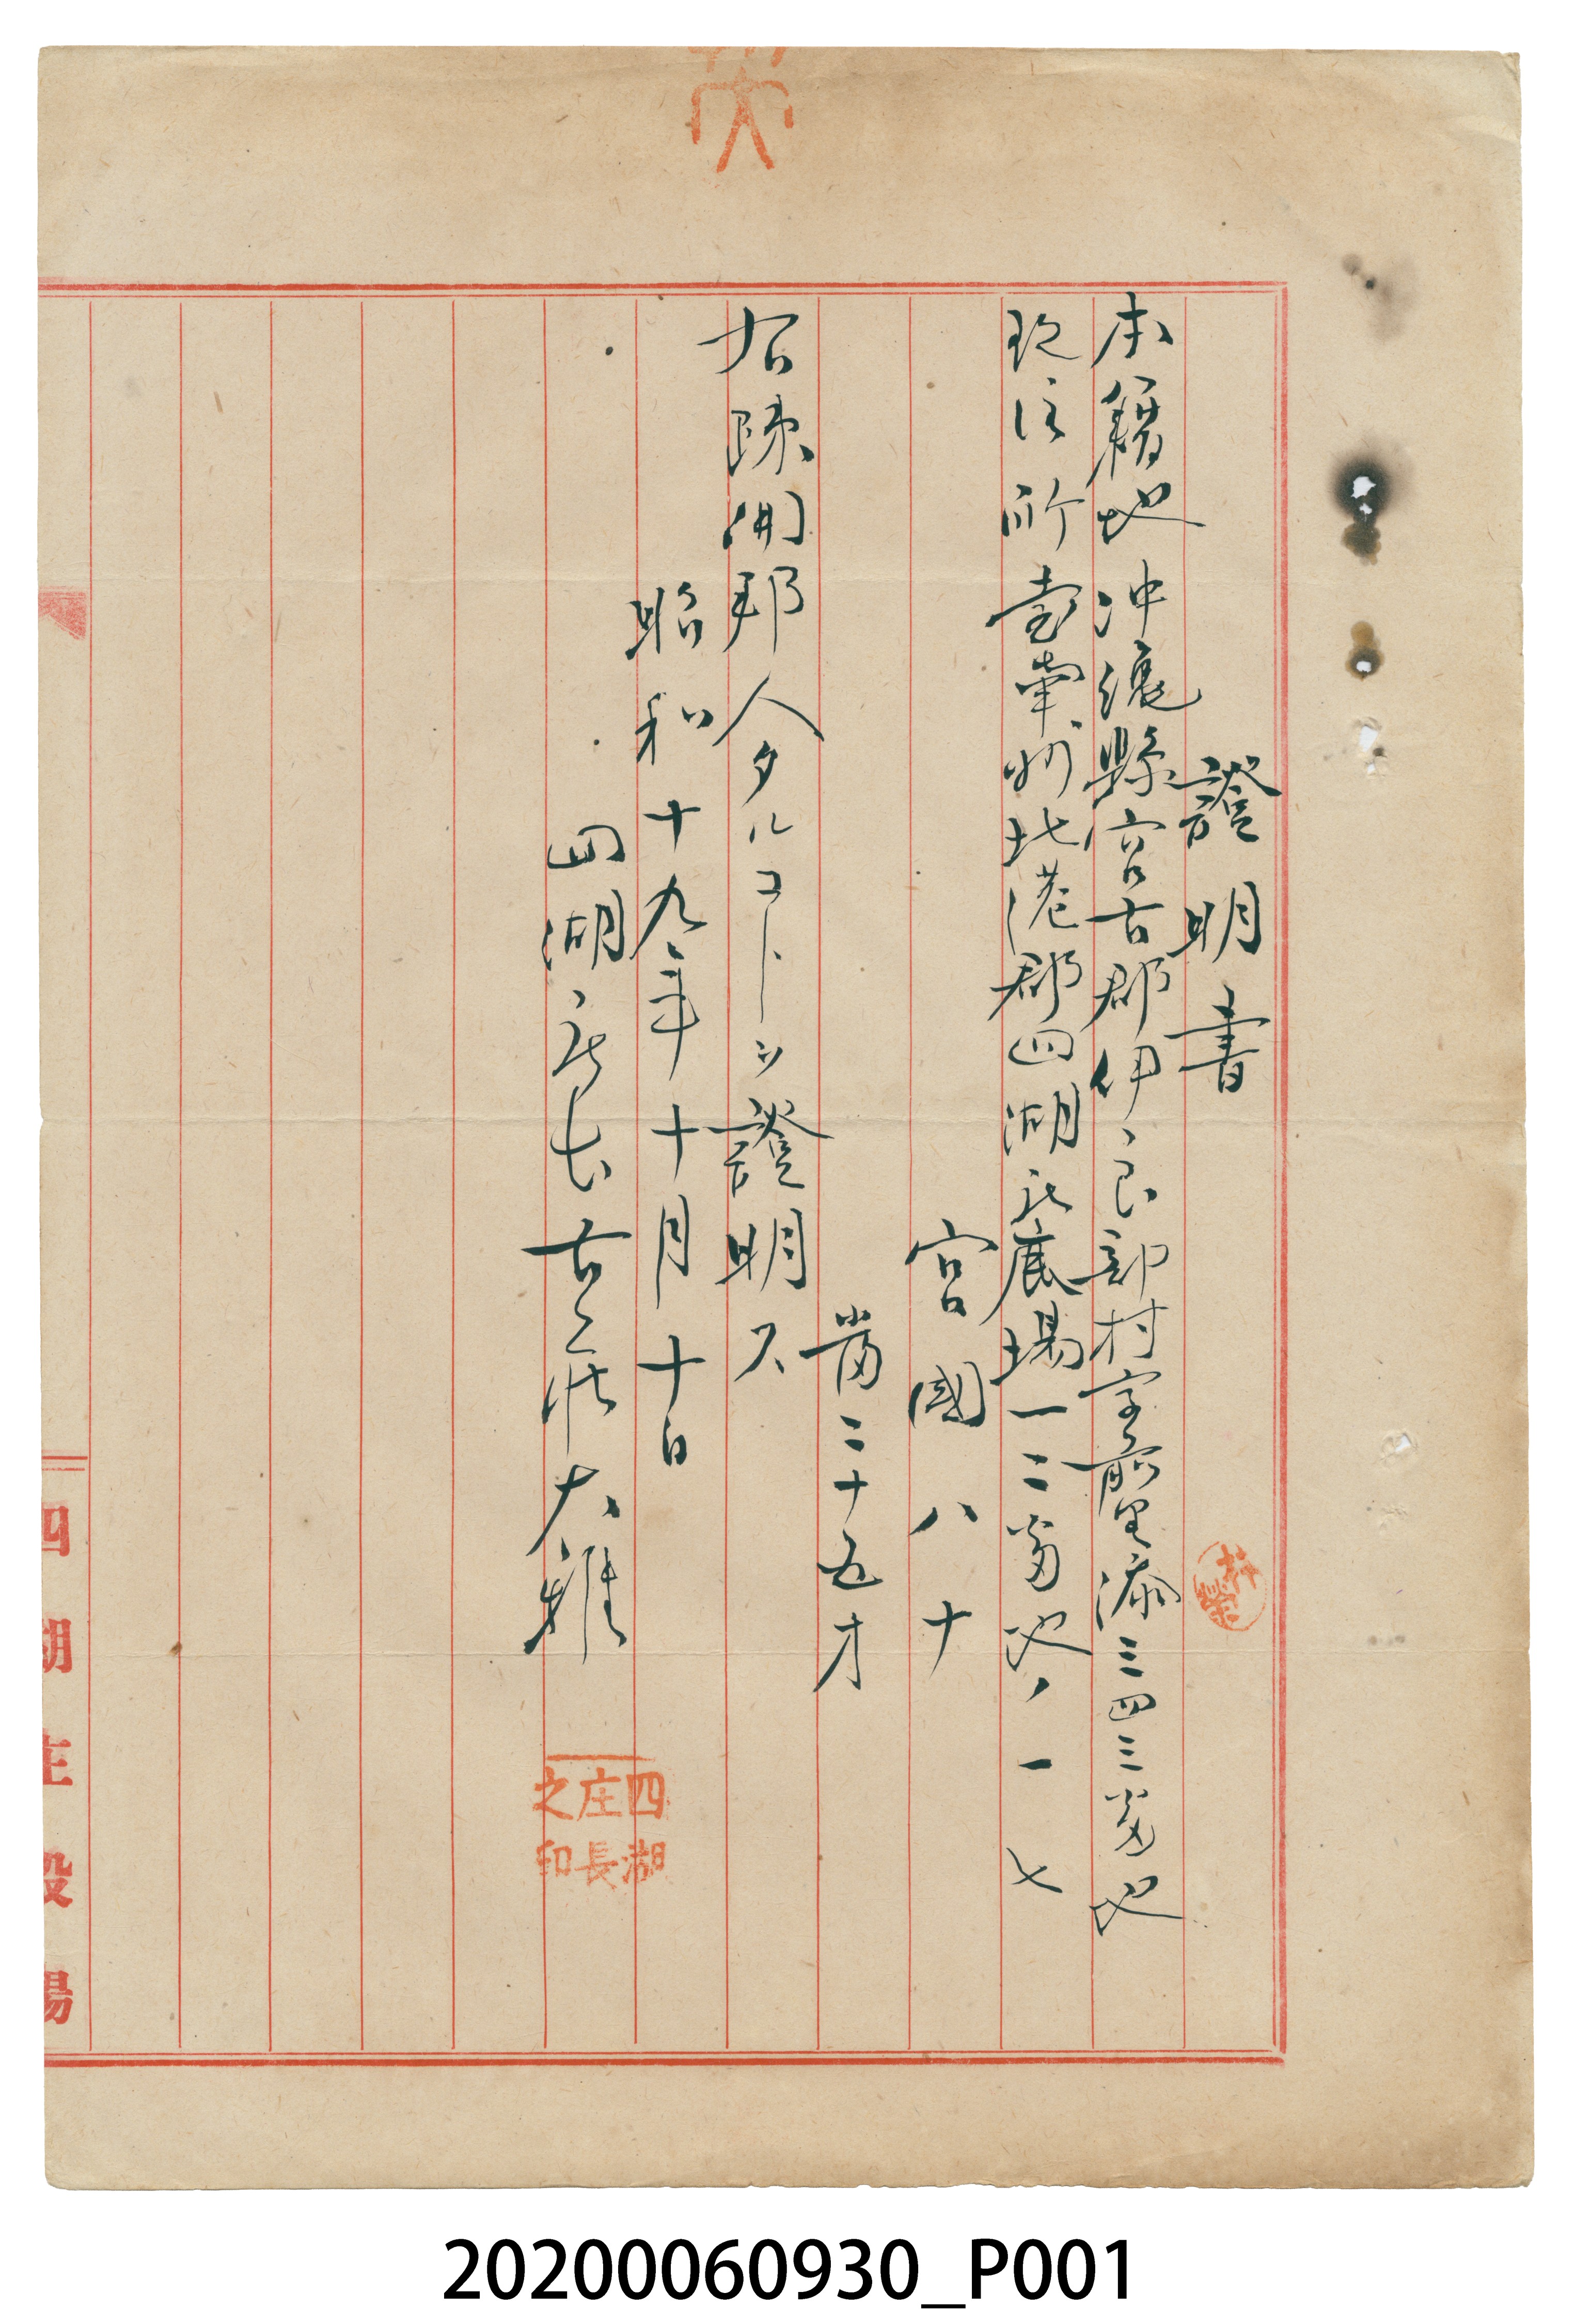 證明書
本籍地 沖縄縣宮古郡伊良部村字前里添三四三番地
現住所 臺南州北港郡四湖庄鹿場一二番地ノ一七
宮國八十
當三十五才
右疎開邦人タルコトヲ證明ス
昭和十九年十月十日
四湖庄長古庄大雅
四湖
庄長
之印
四湖庄役場
20200060930_P001